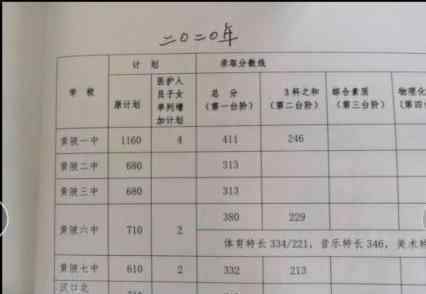 二〇二〇年
学 校 计 划 录取分数线
原计划 医护人员子女单列增加计划 总 分（第一台阶） 3科之和（第二台阶） 综合素质（第三台阶） 物理化
黄陂一中 1160 4 411 246
黄陂二中 680 313
黄陂三中 680 313
黄陂六中 710 2 380 229
体育特长 334/221，音乐特长 346，美术特
黄陂七中 610 2 332 213
汉口北